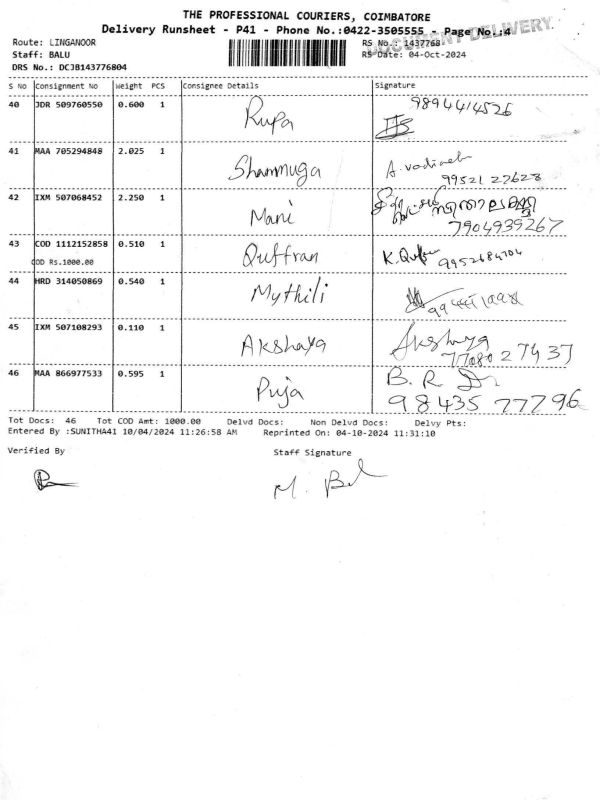 THE PROFESSIONAL COURIERS, COIMBATORE
Delivery Runsheet - P41 - Phone No.:0422-3505555 - Page No.:4
DOCUMENT DELIVERY
Route: LINGANOOR RS No.: 1437768
Staff: BALU RS Date: 04-Oct-2024
DRS No.: DCJB143776804
S No Consignment No Weight PCS Consignee Details Signature
40 JDR 509760550 0.600 1 Rupa 9894414526
41 MAA 705294848 2.025 1 Shanmuga A. 99521 27628
42 IXM 507068452 2.250 1 Mani
7904939267
43 COD 1112152858 0.510 1 Quffran K. 9952684704
COD Rs.1000.00
44 HRD 314050869 0.540 1 Mythili
45 IXM 507108293 0.110 1 Akshaya Akshaya
77080 27437
46 MAA 866977533 0.595 1 Puja B. R
98435 77796
Tot Docs: 46 Tot COD Amt: 1000.00 Delvd Docs: Non Delvd Docs: Delvy Pts:
Entered By :SUNITHA41 10/04/2024 11:26:58 AM Reprinted On: 04-10-2024 11:31:10
Verified By Staff Signature
M. Bal